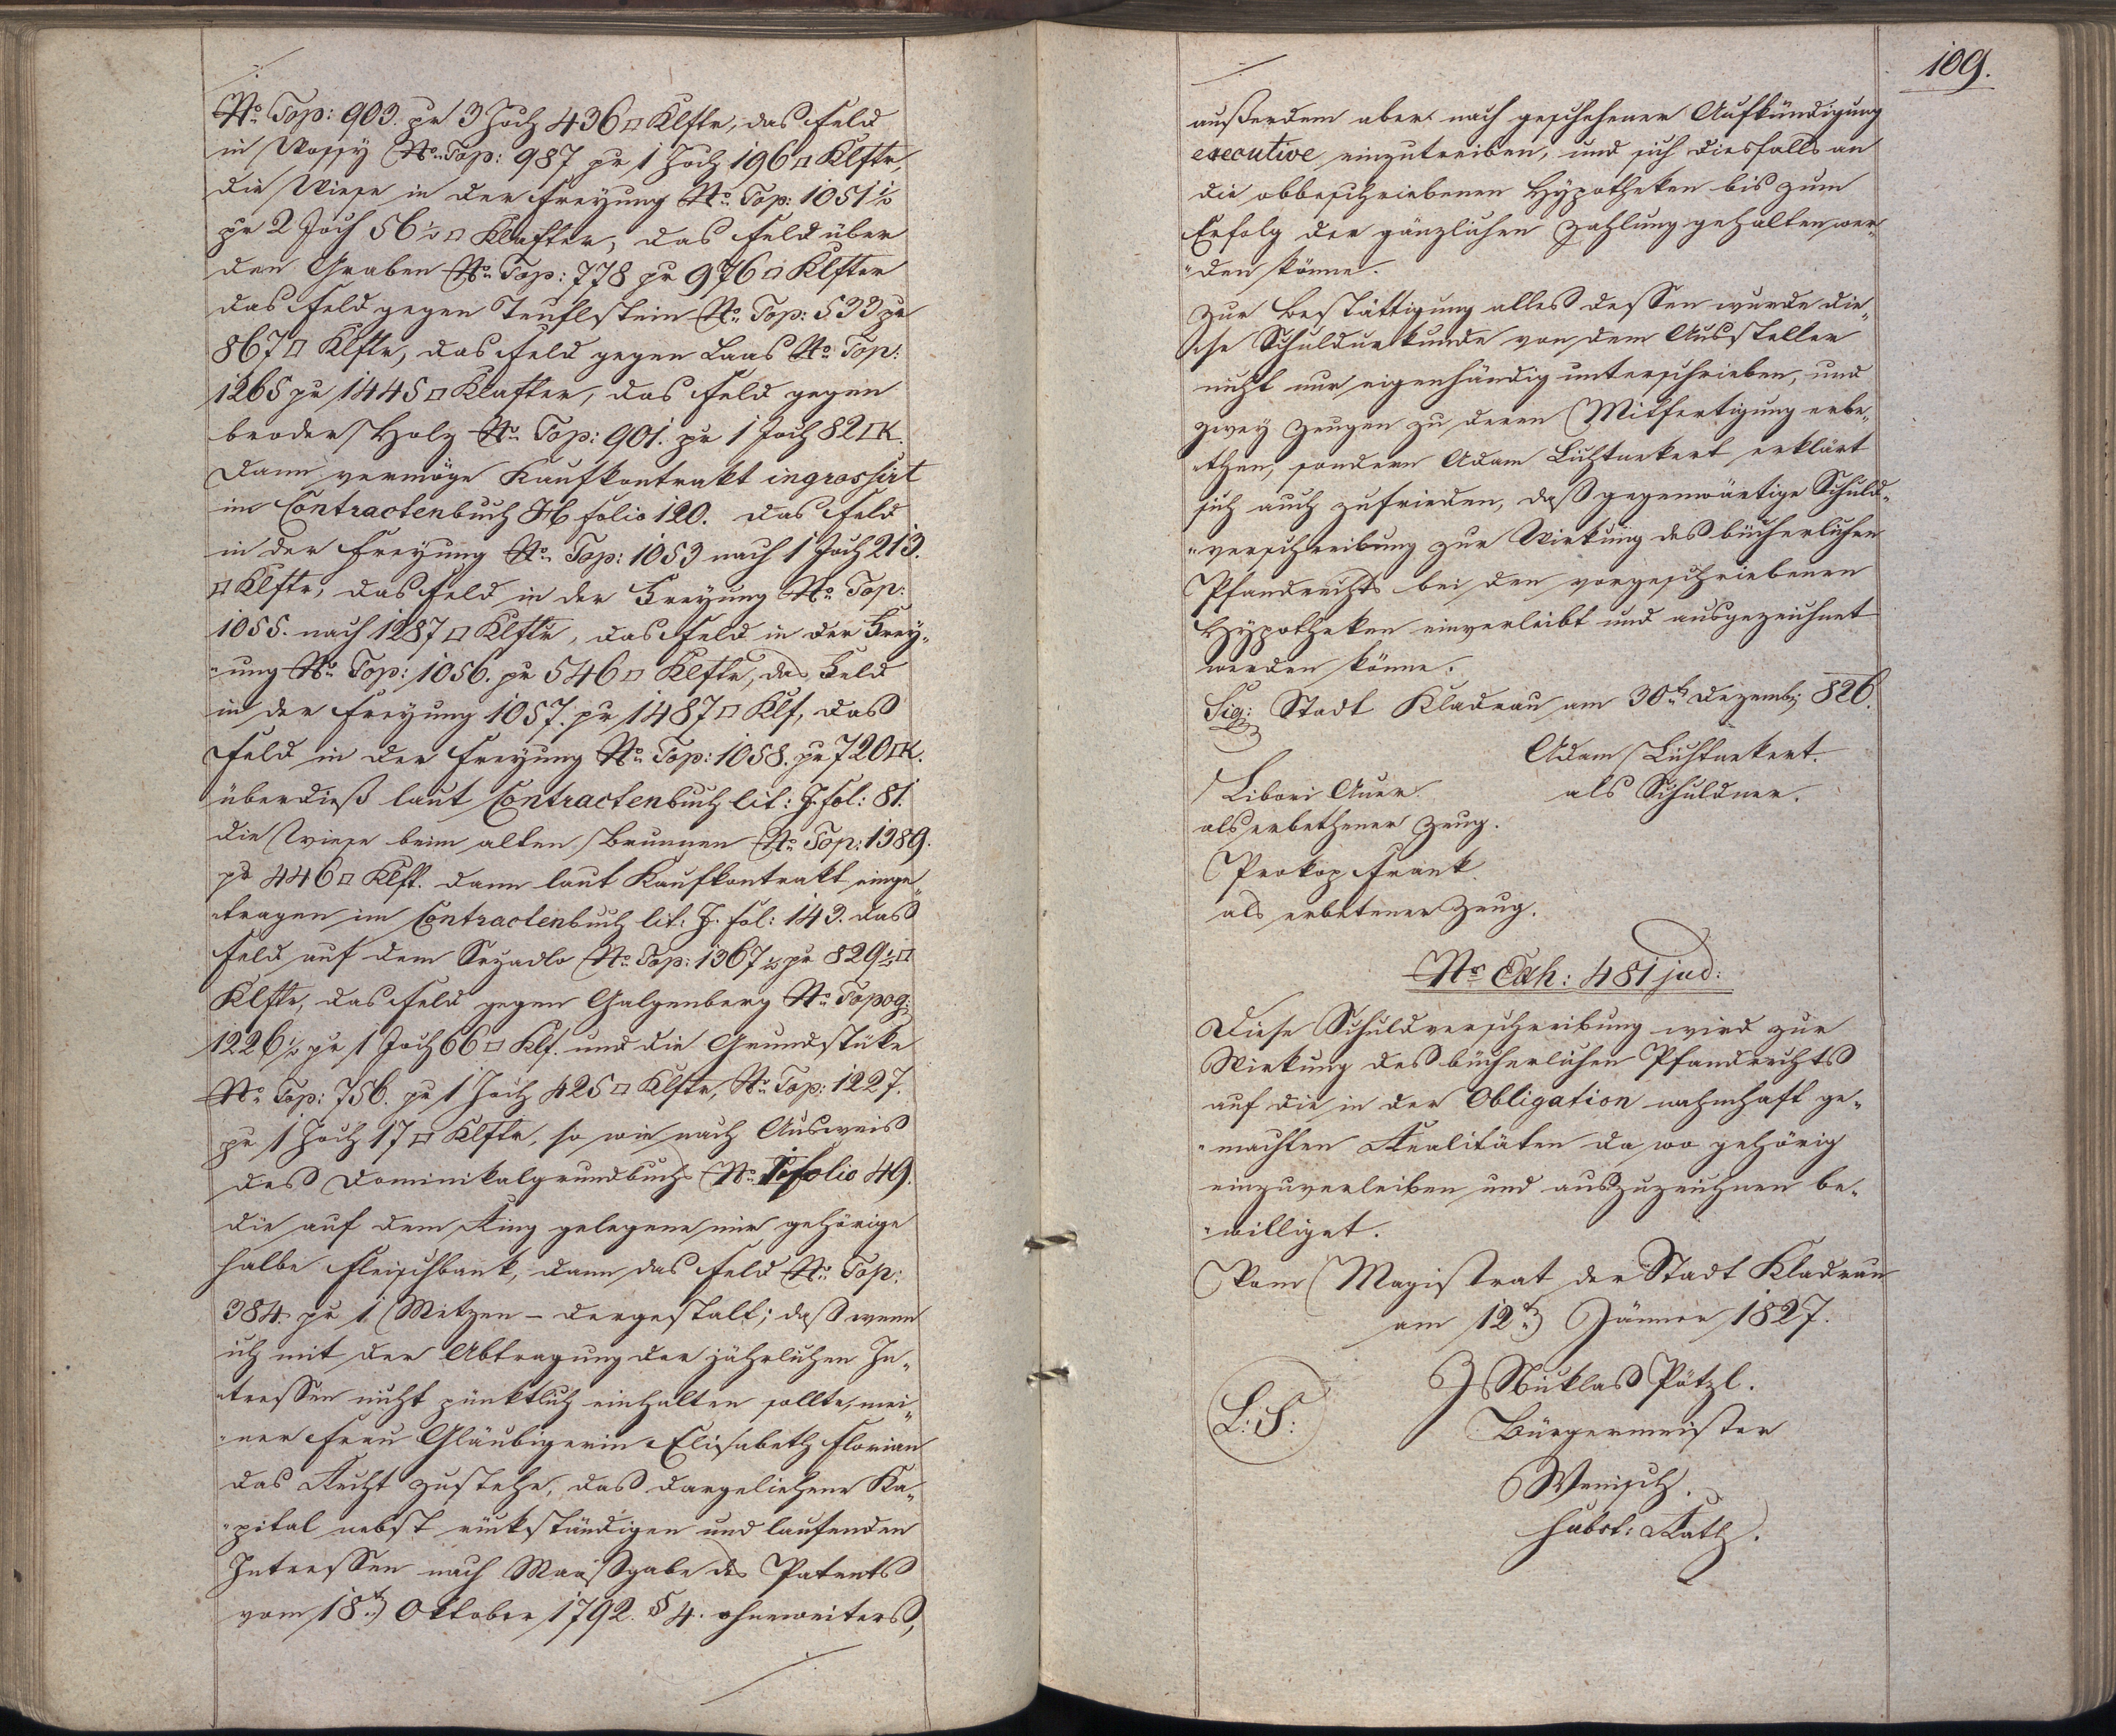 No. Top: 903. pr 3 Joch 436 □ Klftr, das Feld
in Wossy No. Top: 987 pr 1 Joch 196 □ Klftr,
die Wiese in der Freyung No. Top: 1051 1/2
pr 2 Joch 56 1/2 □ Klafter, das Feld über
den Graben No. Top: 778 pr 976 □ Klfter
das Feld gegen Teuflstein No. Top: 533 pr
867 □ Klftr, das Feld gegen Laas No. Top:
1265 pr 1445 □ Klafter, das Feld gegen
Holz No. Top: 901. pr 1 Joch 82 □ K.
Dann vermöge Kaufkontrakt ingrossirt
im Contractenbuch folio 120. das Feld
in der Freyung No. Top: 1053 nach 1 Joch 213.
□ Klftr, das Feld in der Freyung No. Top:
1055. nach 1287 □ Klftr, das Feld in der Frey„
„ung No. Top: 1056. pr 546 □ Klftr, das Feld
in der Freyung 1057. pr 1487 □ Klf, das
Feld in der Freyung No. Top: 1058. pr 720 □ K.
überdieß laut Contractenbuch lit: J. fol: 81.
die Wiese beim alten Brunnen No. Top: 1389.
pr 446 □ Klft. dann laut Kaufkontrakt einge„
„tragen im Contractenbuch lit: J. fol: 143. das
Feld auf dem No. Top: 1367 1/2 pr 829 1/2 □
Klftr, das Feld gegen Galgenberg No. Topog:
1226 1/2 pr 1 Joch 66 □ Klf. und die Grundstüke
No. Top: 756. pr 1 Joch 425 □ Klftr, No. Top: 1227.
pr 1 Joch 17 □ Klftr, so wie nach Ausweis
des Dominikalgrundbuchs No. folio 49.
die auf dem Ring gelegene mir gehörige
halbe Fleischbank, dann das Feld No. Top:
384. pr 1 Metzen – dergestalt; daß wenn
ich mit der Abtragung der jährlichen In„
„tressen nicht pünktlich einhalten sollte, mei„
„ner Frau Gläubigerin Elisabeth Florian
das Recht zustehe, das dargeliehene Ka„
„pital nebst rükständigen und laufenden
Intressen nach Maaßgabe des Patents
vom 18ten Oktober 1792. § 4. ohneweiters,
109.
außerdem aber nach geschehener Aufkündigung
executive einzutreiben, und sich diesfalls an
die obbeschriebenen Hypotheken bis zum
Erfolg der gänzlichen Zahlung gehalten wer„
„den könne.
Zur Bestättigung alles dessen wurde die„
„se Schuldurkunde von dem Aussteller
nicht nur eigenhändig unterschrieben, und
zwey Zeugen zu deren Mitfertigung erbe„
„then, sondern Adam Lichtnekert erklärt
sich auch zufrieden, daß gegenwärtige Schuld„
„verschreibung zur Wirkung des bücherlichen
Pfandrechts bei den vorgeschriebenen
Hypotheken einverleibt und ausgezeichnet
werden könne.
Sig: Stadt Kladrau am 30ten Dezemb: 826.
Adam Lichtnekert.
Libori Auer. als Schuldner.
als erbethener Zeug.
Prokop Frank
als erbetener Zeug.
Nr. Exh: 481 jud:
Diese Schuldverschreibung wird zur
Wirkung des bücherlichen Pfandrechts
auf die in der Obligation nahmhaft ge„
„machten Realitäten da wo gehörig
einzuverleiben und auszuzeichnen be„
„williget.
Vom Magistrat der Stadt Kladrau
am 12ten Jänner 1827.
Niklas Pötzl.
L: S: Bürgermeister
Wenisch.
subst: Rath.